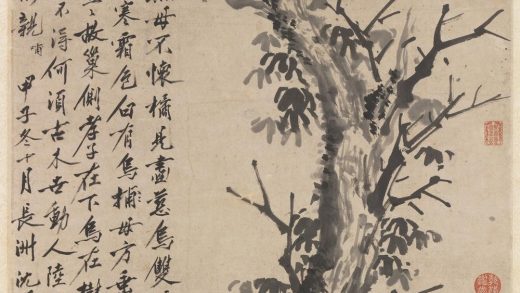 母不懷橘見畫慈烏雙
寒霜色白有烏母方
故巢側孝子在下烏在樹
不得何須古木世動人陸
親甫 甲子冬十月長洲沈